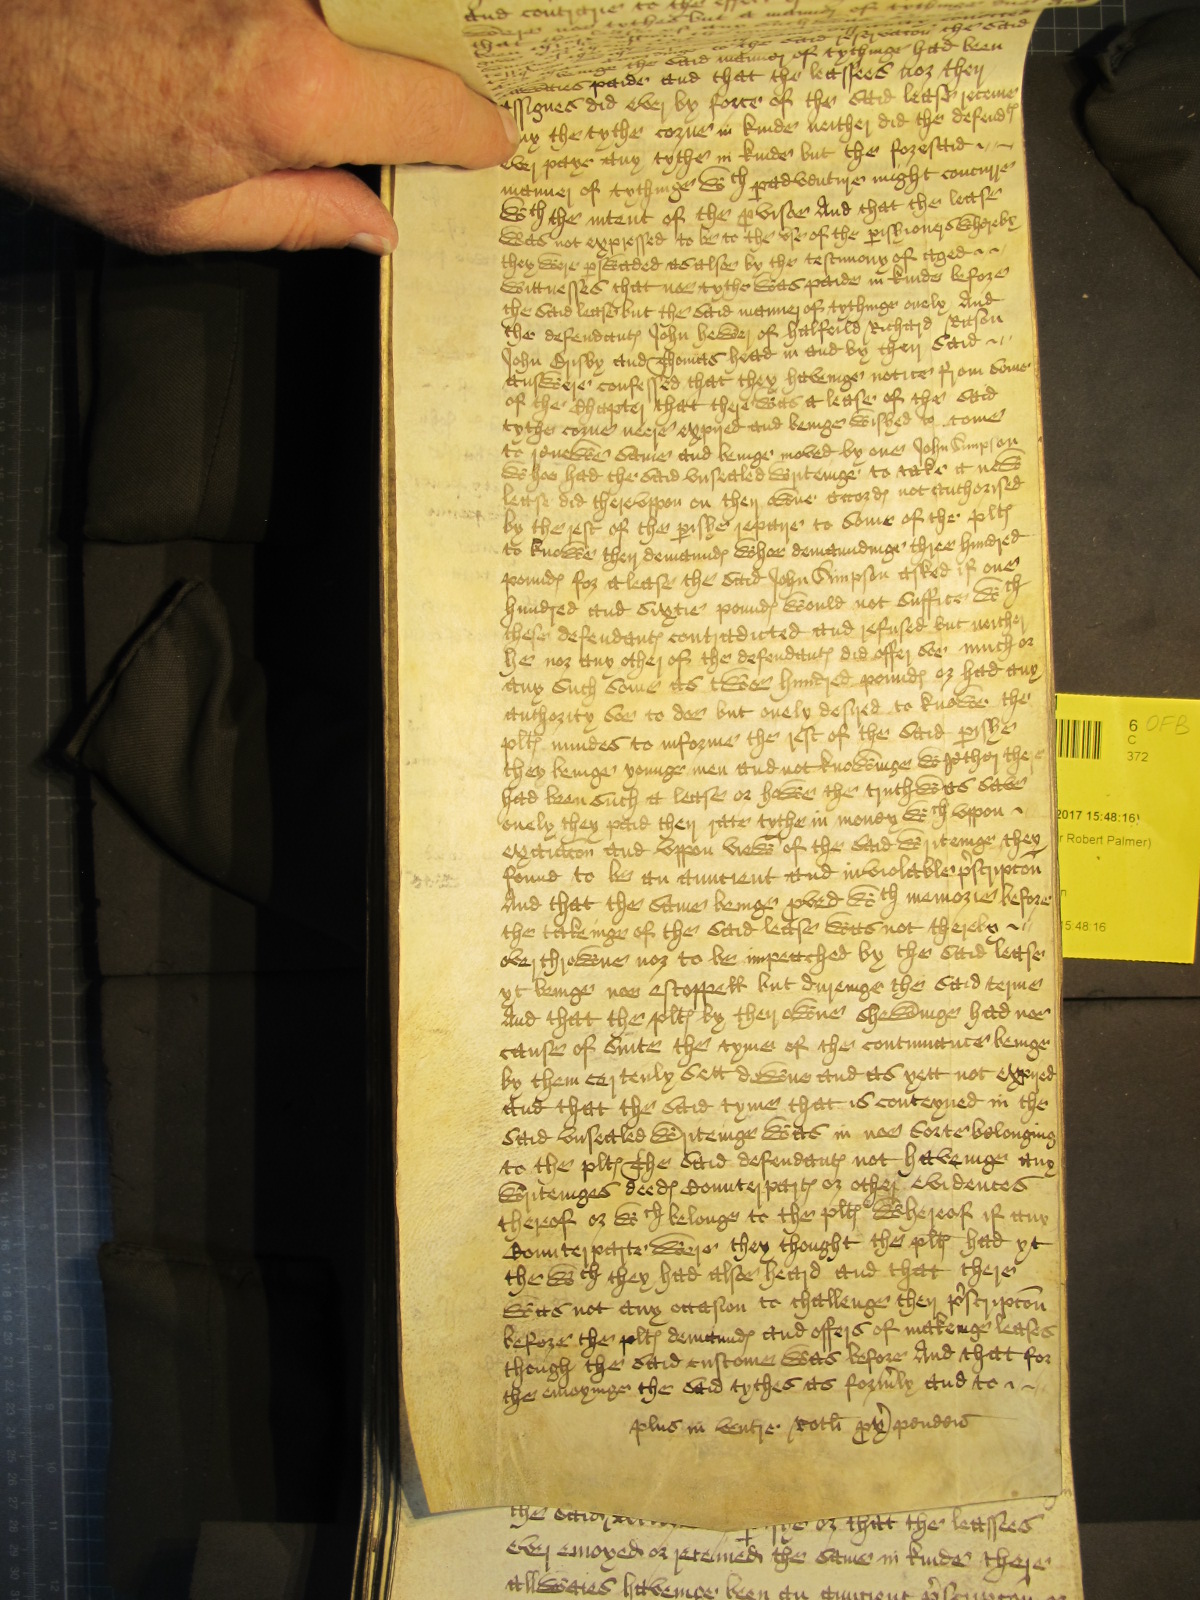 and contrarie to the effect of
were not
tythes but a manner of tythinge
that
to the said reservacon the said
beinge the said manner of tythinge had been
allwaies paide and that the leassees nor their
assignes did ever by force of the said lease receive
any the tythe corne in kinde neither did the defendtes
ever paye any tythe in kinde but the foresaid
manner of tythinge wch padventure might concurre
wth the intent of the pvisoe And that the lease
was not expressed to be to the use of the pishioners whereby
they were pswaded as alsoe by the testimony of aged
wittnesses that noe tythe was paide in kinde before
the said lease but the said manner of tythinge onely And
the defendantes John hewer of halfeild Richard Ritson
John Brisby and Thomas head in and by their said
answere confessed that they haveinge notice from some
of the Chapter that there was a lease of the said
tythe corne neere expired and beinge wished to come
to renewe same and beinge moved by one John Simpson
whoe had the said unsealed writeinge to take a new
lease did thereuppon on their owne accordes not authorised
by the rest of the pishe repaire to some of the pltes
to knowe their demaundes whoe demaundinge three hundred
poundes for a lease the said John Simpson asked if one
hundred and sixtie poundes would not suffice wch
these defendantes contradicted and refused but neither
he nor any other of the defendantes did offer soe much or
any such some as twoe hundred poundes or had any
authority soe to doe but onely desired to knowe the
pltes mindes to informe the rest of the said pishe
they beinge younge men and not knowinge whether there
had been such a lease or howe the truth was save
onely they paid their rate tythe in money wch uppon
exacacon and uppon view of the said writeinge they
found to be an auncient and inviolable pscripcon
And that the same beinge pved wth memorie before
the takeinge of the said lease was not thereby
overthrowne nor to be impeached by the said lease
yt beinge noe estoppell but dureinge the said terme
And that the pltes by their owne shewinge had noe
cause of suite the tyme of the continuance beinge
by them certenly sett downe and as yett not expired
and that the said tyme that is conteyned in the
said unsealed writeinge was in noe sorte belonging
to the pltes The said defendantes not haveinge any
writeinges deedes Counterpartes or other evidences
thereof or wch belonge to the pltes whereof if any
Counterparte were they thought the pltes had yt
the wch they had alsoe heard and that there
was not any occasion to challenge their pscripcon
before the pltes demaundes and offers of makeinge leases
though the said custome was before And that for
the enioyinge the said tythes as formly and to
plus in ventre Rotli pxi pendens
the said pishe or that the leassees
ever enioyed or received the same in kinde there
allwaies haveinge been an auncient pscripcon or
6 OFB
C
372
2017 15:48:16
r Robert Palmer)
n
15:48:16